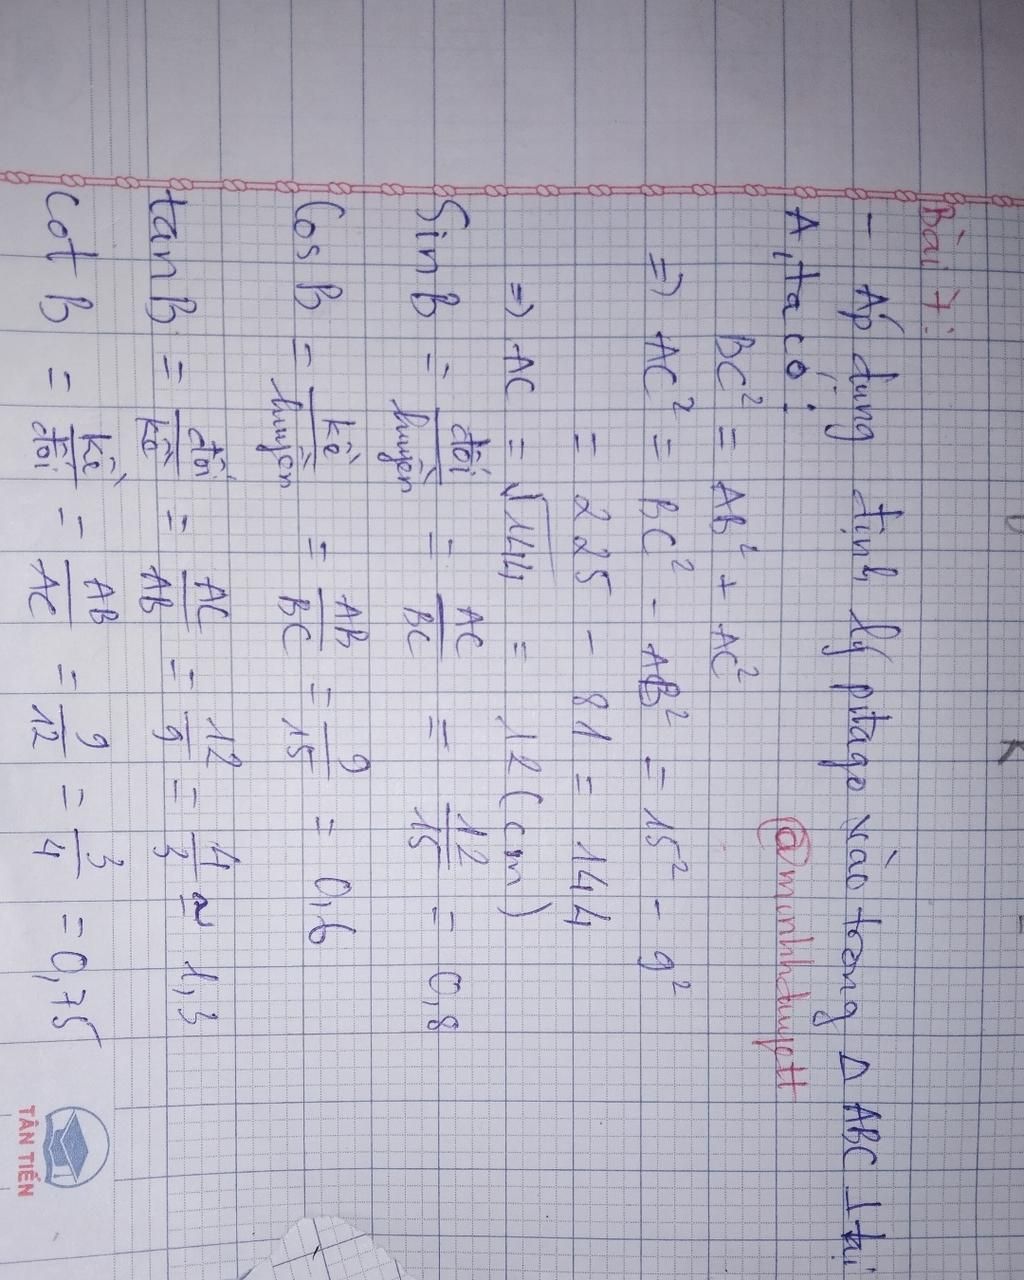 Bài 7:
- Áp dụng định lý pitago vào trong Δ ABC ⊥ tại
A, ta có:
@minhhduyett
BC² = AB² + AC²
=> AC² = BC² - AB² = 15² - 9²
= 225 - 81 = 144
=> AC = √144 = 12 (cm)
Sin B = đối/huyền = AC/BC = 12/15 = 0,8
Cos B = kề/huyền = AB/BC = 9/15 = 0,6
tan B = đối/kề = AC/AB = 12/9 = 4/3 ≃ 1,3
Cot B = kề/đối = AB/AC = 9/12 = 3/4 = 0,75
TÂN TIẾN